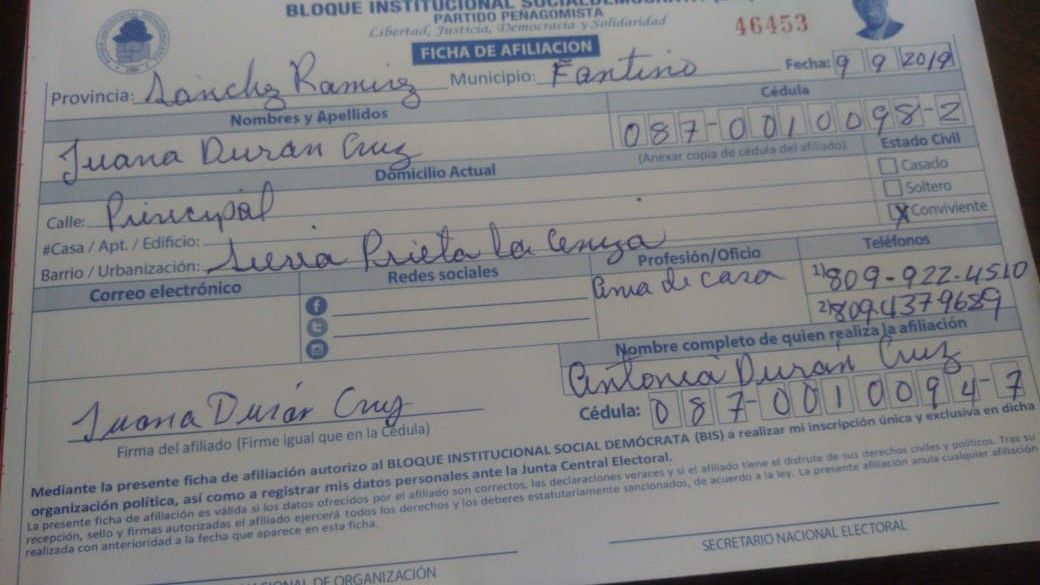 BLOQUE INSTITUCIONAL SOCIALDEMÓCRATA
PARTIDO PEÑAGOMISTA
Libertad, Justicia, Democracia y Solidaridad
46453
FICHA DE AFILIACIÓN
Provincia: Sánchez Ramirez Municipio: Fantino Fecha: 9 9 2019
Nombres y Apellidos Cédula
Juana Durán Cruz 087-0010098-2
(Anexar copia de cédula del afiliado)
Domicilio Actual Estado Civil
Casado
Calle: Principal Soltero
#Casa / Apt. / Edificio: X Conviviente
Barrio / Urbanización: Sierra Prieta La Ceniza
Correo electrónico Redes sociales Profesión/Oficio Teléfonos
ama de casa 1) 809-922-4510
2) 809.4379689
Nombre completo de quien realiza la afiliación
Antonia Durán Cruz
Juana Durán Cruz Cédula: 087-0010094-7
Firma del afiliado (Firme igual que en la Cédula)
Mediante la presente ficha de afiliación autorizo al BLOQUE INSTITUCIONAL SOCIAL DEMÓCRATA (BIS) a realizar mi inscripción única y exclusiva en dicha
organización política, así como a registrar mis datos personales ante la Junta Central Electoral.
La presente ficha de afiliación es válida si los datos ofrecidos por el afiliado son correctos, las declaraciones veraces y si el afiliado tiene el disfrute de sus derechos civiles y políticos. Tras su
recepción, sello y firmas autorizadas el afiliado ejercerá todos los derechos y los deberes estatutariamente sancionados, de acuerdo a la ley. La presente afiliación anula cualquier afiliación
realizada con anterioridad a la fecha que aparece en esta ficha.
SECRETARIO NACIONAL ELECTORAL
NACIONAL DE ORGANIZACIÓN